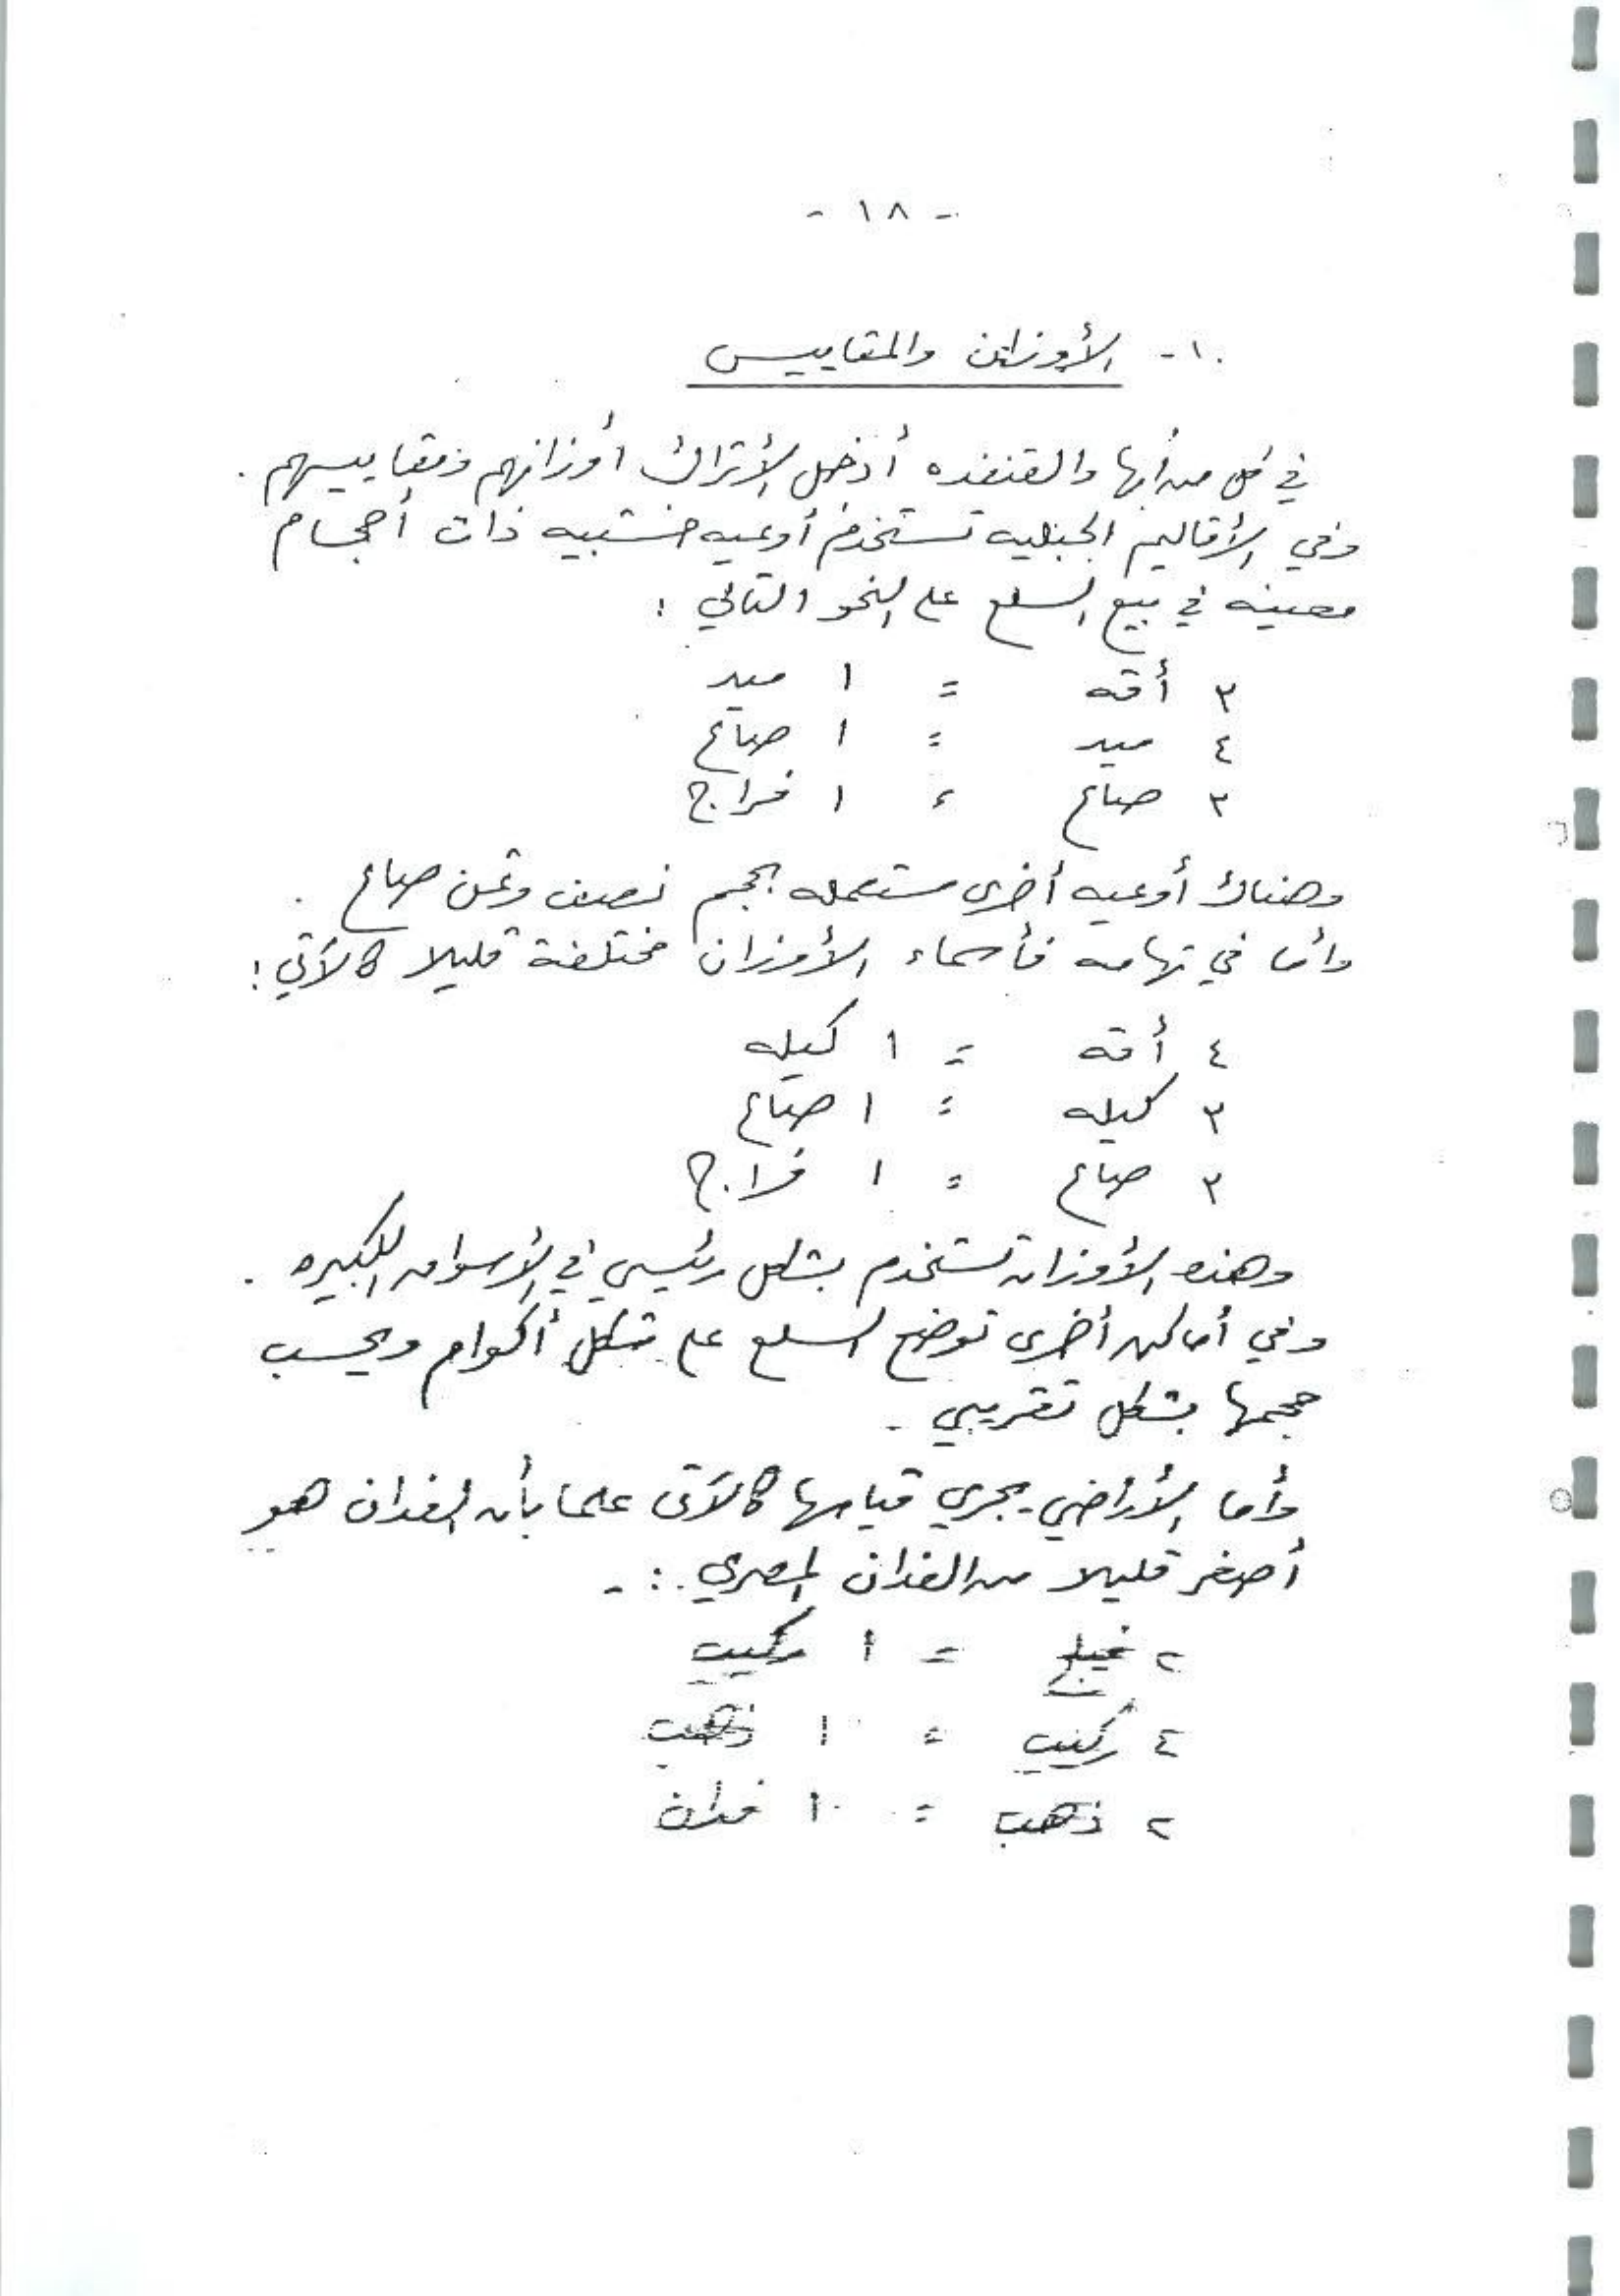 - ١٨ -
١٠- الأوزان والمقاييس
في كل من أبها والقنفذه أدخل الأتراك أوزانهم ومقاييسهم .
وفي الأقاليم الجبليه تستخدم أوعيه خشبيه ذات أحجام
معينه في بيع السلع على النحو التالي :
٣ أقه = ١ ميد
٤ ميد = ١ صاع
٣ صاع = ١ فراج
وهناك أوعيه أخرى مستعمله بحجم نصف وثمن صاع .
وأما في تهامه فأسماء الأوزان مختلفة قليلا كالآتي :
٤ أقه = ١ كيله
٣ كيله = ١ صاع
٣ صاع = ١ فراج
وهذه الأوزان تستخدم بشكل رئيسي في الأسواق الكبيره .
وفي أماكن أخرى توضع السلع على شكل أكوام ويحسب
حجمها بشكل تقريبي .
وأما الأراضي يجري قياسها كالآتى علما بأن الفدان هو
أصغر قليلا من الفدان المصري :-
٢ = ١ ركيب
٤ ركيب = ١ ذهب
٢ ذهب = ١ فدان